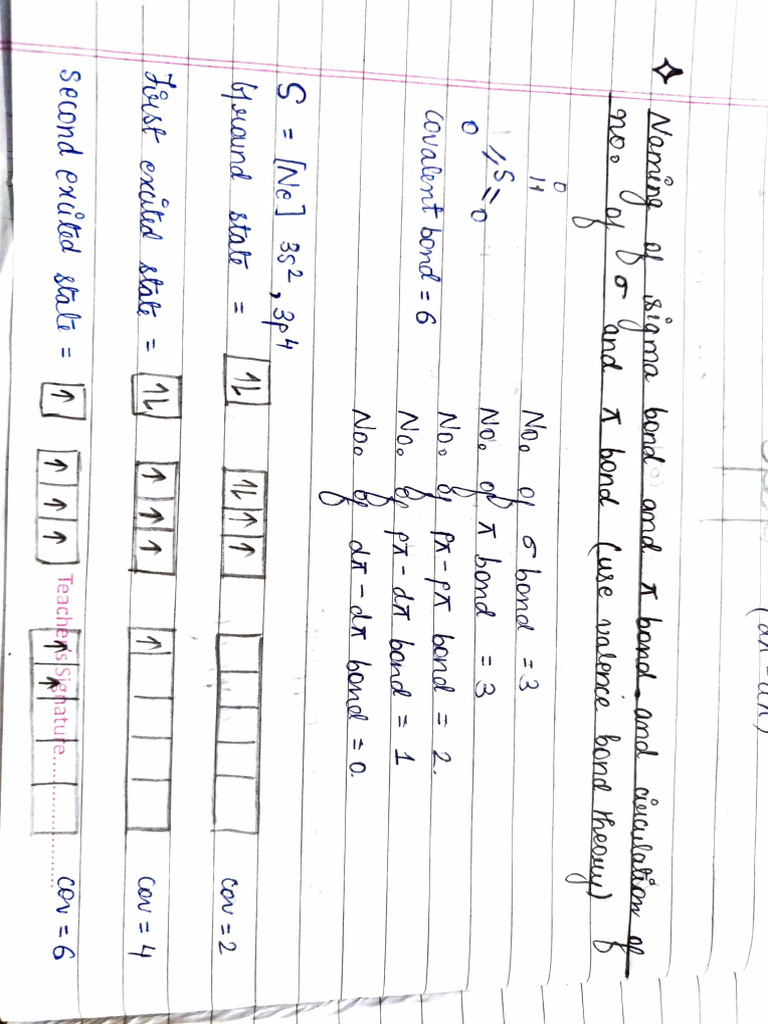 (dπ-dπ)
Naming of sigma bond and π bond and circulation of
no. of σ and π bond (use valence bond theory)
O
S = O
O
Covalent bond = 6
No. of σ bond = 3
No. of π bond = 3
No. of pπ-pπ bond = 2.
No. of pπ-dπ bond = 1
No. of dπ-dπ bond = 0.
S = [Ne] 3s², 3p⁴
Ground state = 1L 1L 1 1 cov = 2
First excited state = 1L ↑ ↑ ↑ ↑ cov = 4
Second excited state = ↑ ↑ ↑ ↑ ↑ ↑ cov = 6
Teacher's Signature....................